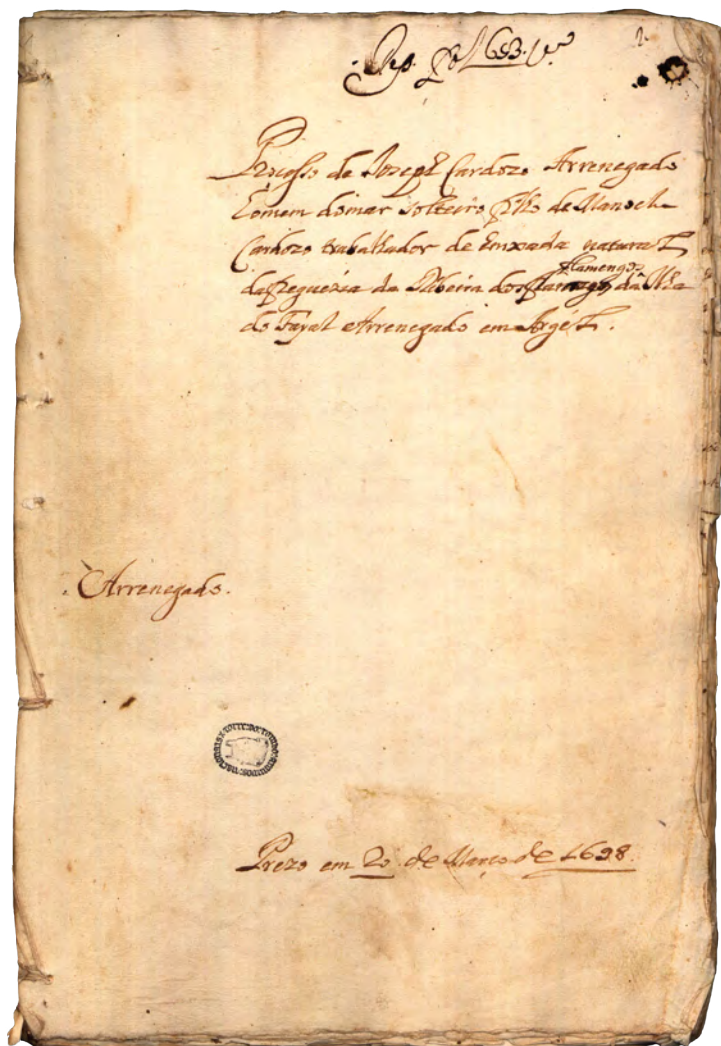 Rep. fol 653. vº
2
Processo de Jozeph Cardozo Arrenegado
homem do mar solteiro fho de Manoel
Cardozo trabalhador de Emxada natural
da freguezia da Ribeira dos flamengos da Ilha
do Fayal e Arrenegado em Argel.
Arrenegado.
Prezo em 20 de Março de 1698.